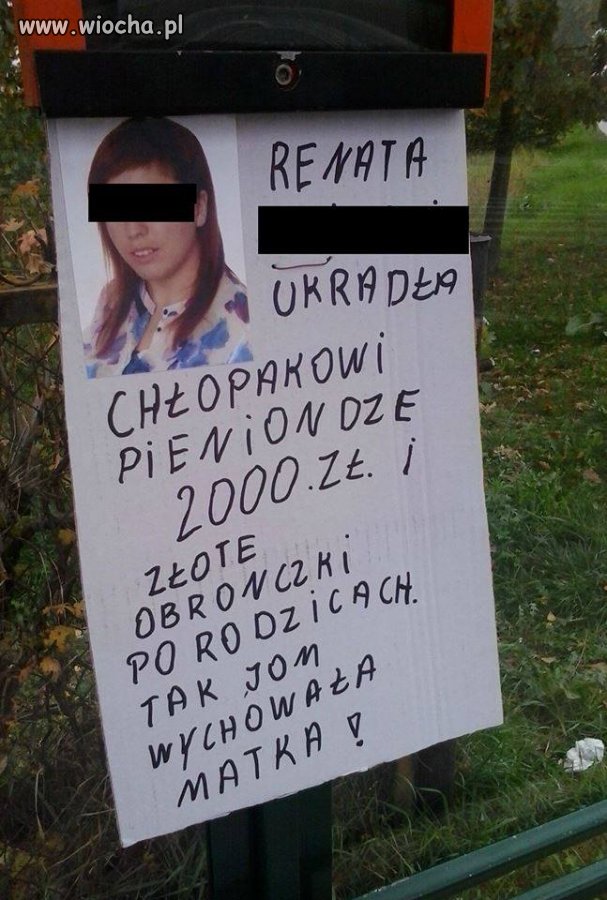 www.wiocha.pl
RENATA
UKRADŁA
CHŁOPAKOWI
PIENIONDZE
2000.ZŁ. i
ZŁOTE
OBRONCZKI
PO RODZICACH.
TAK JOM
WYCHOWAŁA
MATKA!